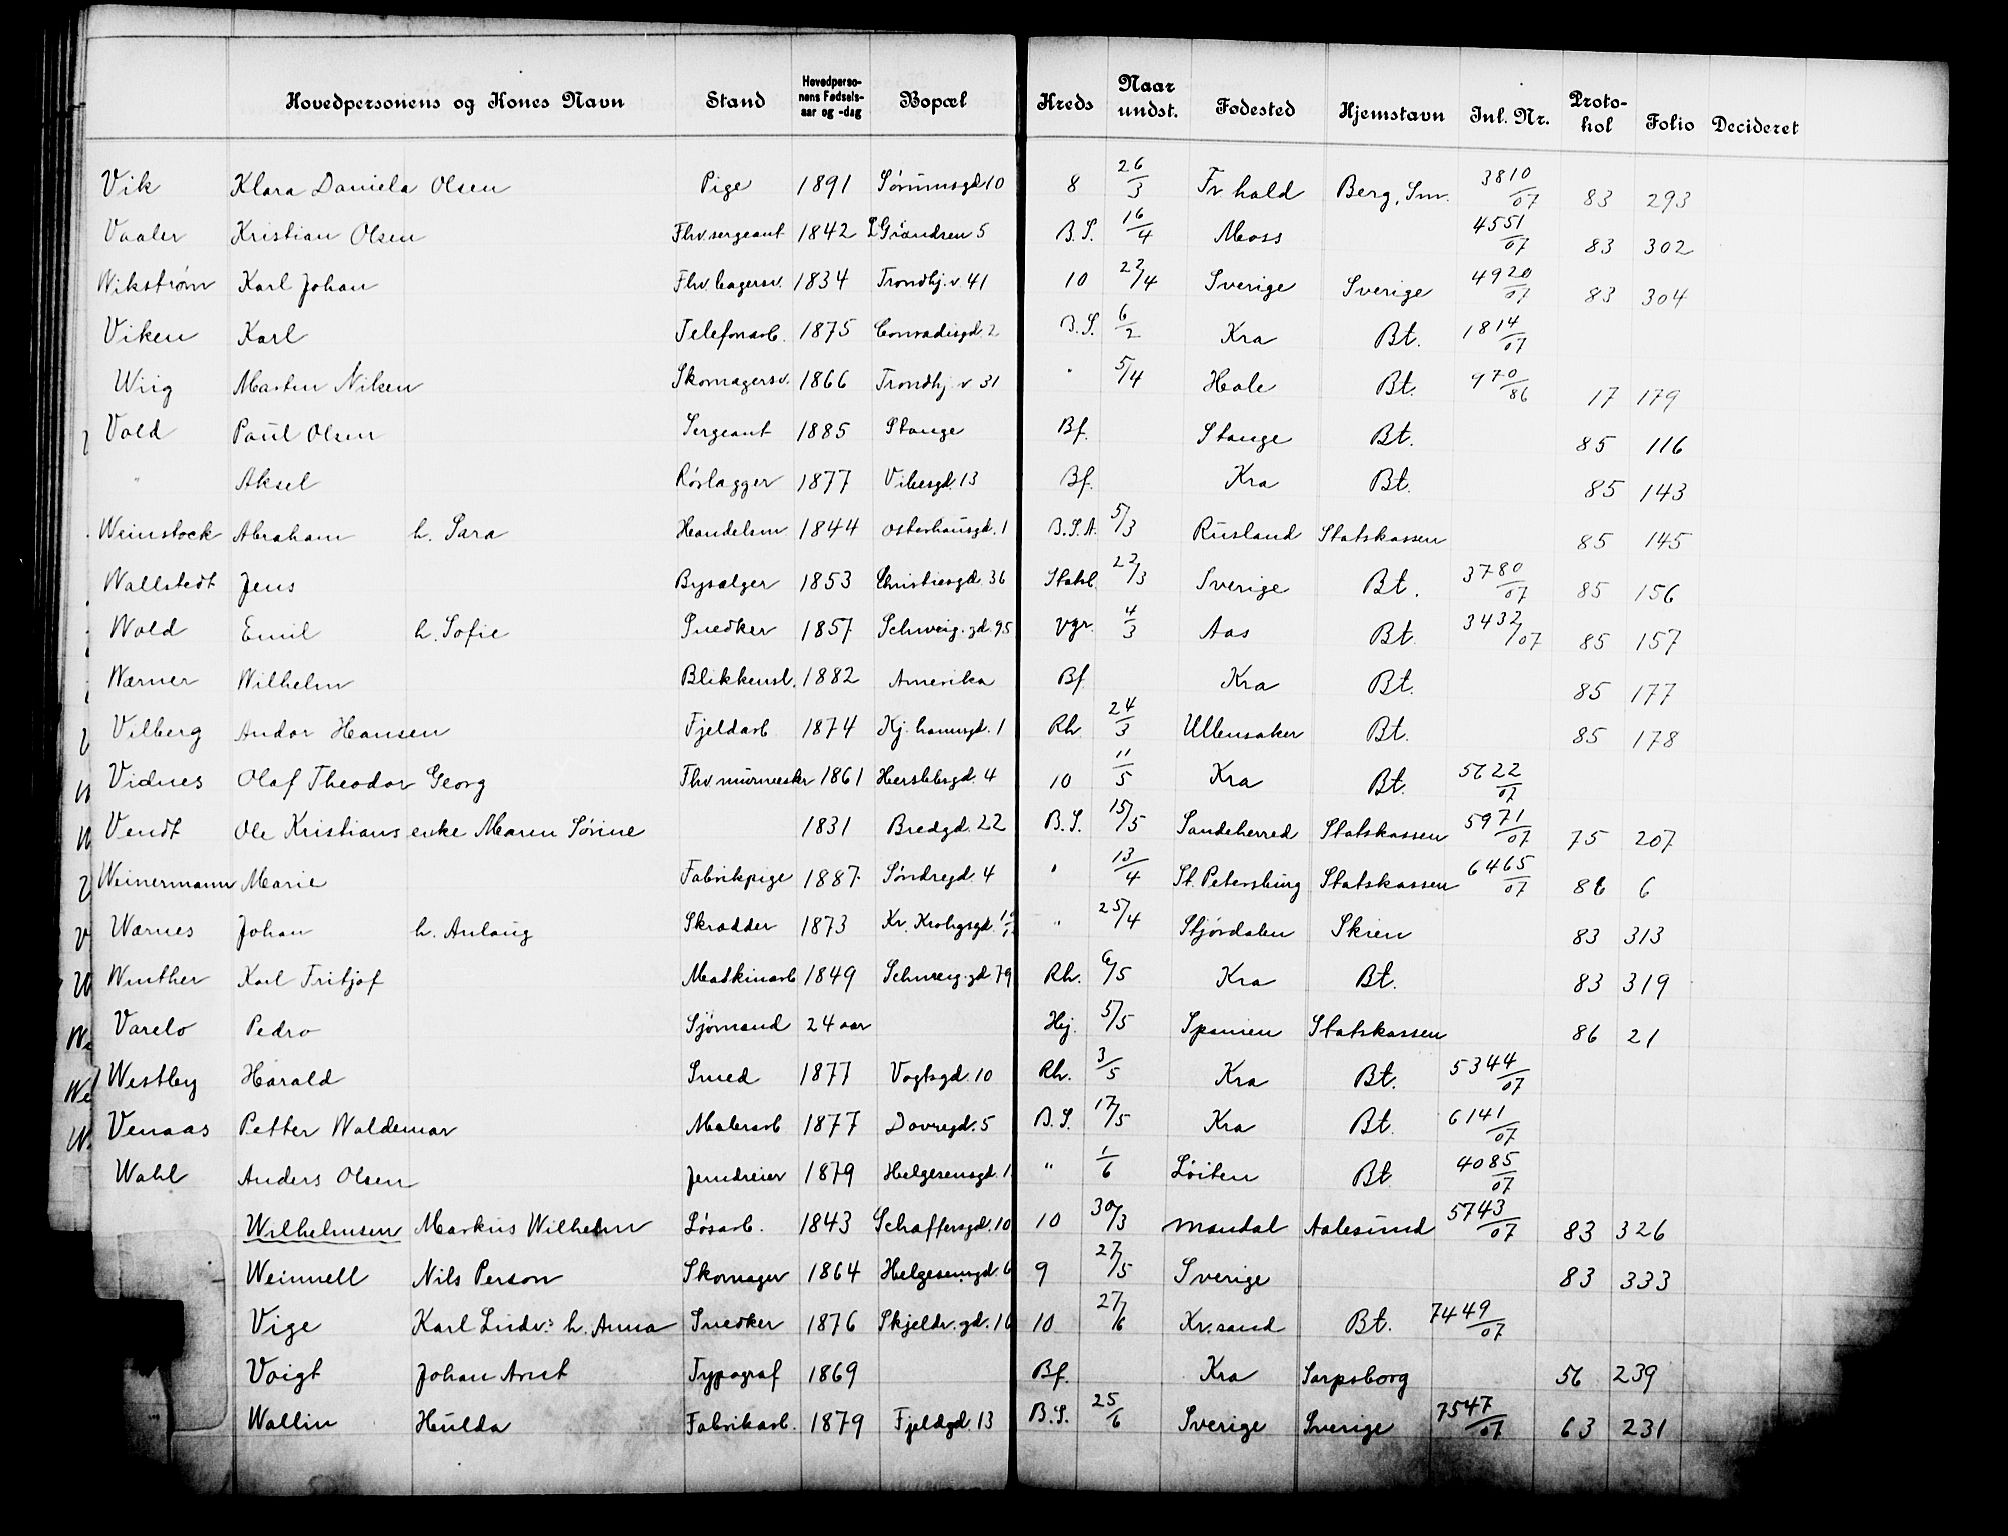 Hovedpersonens og Kones Navn Stand Hovedperso-nens Fødsels-aar og -dag Bopæl Kreds Naar undst. Fødested Hjemstavn Jnl. Nr. Proto-kol Folio Decideret
Vik Klara Daniela Olsen Pige 1891 Sørumsgd 10 8 26/3 Fr.hald Berg, Sm. 3810/07 83 293
Vaaler Kristian Olsen Fhv. sergeant 1842 Grændsen 5 B.S. 16/4 Moss 4551/07 83 302
Wikstrøm Karl Johan Fhv. bagersv. 1834 Trondhj. v. 41 10 22/4 Sverige Sverige 4920/07 83 304
Viken Karl Telefonarb. 1875 Conradisgd. 2 B.S. 6/2 Kra Bt. 1814/07
Wiig Martin Nilsen Skomagersv. 1866 Trondhj. v 31 " 5/4 Hole Bt. 970/86 17 179
Vold Paul Olsen Sergeant 1885 Stange Bf. Stange Bt. 85 116
" Aksel Rørlægger 1877 Vibesgd. 13 Bf. Kra Bt. 85 143
Weinstock Abraham h. Sara Handelsm. 1844 Osterhausgd. 1 B.S.A. 5/3 Rusland Statskassen 85 145
Wallstedt Jens Bysælger 1853 Christiesgd. 36 22/3 Sverige Bt. 3780/07 85 156
Wold Emil h. Sofie Snedker 1857 Schweig.gd. 95 Vgr. 4/3 Aas Bt. 3432/07 85 157
Wærner Wilhelm Blikkensl. 1882 Amerika Bf. Kra Bt. 85 177
Vilberg Andor Hansen Fjeldarb. 1874 Kj.havnsgd. 1 Rh. 24/3 Ullensaker Bt. 85 178
Vidnes Olaf Theodor Georg Fhv. murmester 1861 Herslebsgd. 4 10 11/5 Kra Bt. 5622/07
Vendt Ole Kristians enke Maren Sørine 1831 Bredgd. 22 B.S. 15/5 Sandeherred Statskassen 5971/07 75 207
Weinermann Marie Fabrikpige 1887 Søndregd. 4 " 13/4 St. Petersburg Statskassen 6465/07 86 6
Wærnes Johan h. Anlaug Skrædder 1873 Kr. Krohgsgd. " 25/4 Stjørdalen Skien 83 313
Winther Karl Fritjof Maskinarb 1849 Schweig.gd 79 Rh. 6/5 Kra Bt. 83 319
Varelo Pedro Sjømand 24 aar Hej. 5/5 Spanien Statskassen 86 21
Westby Harald Smed 1877 Vogtsgd. 10 Rh. 3/5 Kra Bt. 5344/07
Venaas Petter Waldemar Malerarb 1877 Dovregd. 5 B.S. 17/5 Kra Bt. 6141/07
Wahl Anders Olsen Jerndreier 1879 Helgesensgd. 1 " 1/6 Løiten Bt. 4085/07
Wilhelmsen Markus Wilhelm Løsarb. 1843 Schaffersgd. 10 10 30/3 Mandal Aalesund 5743/07 83 326
Weinnell Nils Person Skomager 1864 Helgesensgd. 6 9 27/5 Sverige 83 333
Vige Karl Ludv. h. Anna Snedker 1876 Skjeldr.gd. 16 10 27/6 Kr.sand Bt. 7449/07
Voigt Johan Arnt Typograf 1869 Bf. Kra Sarpsborg 56 239
Wallin Hulda Fabrikarb. 1879 Fjeldgd. 13 B.S. 25/6 Sverige Sverige 7547/07 63 231